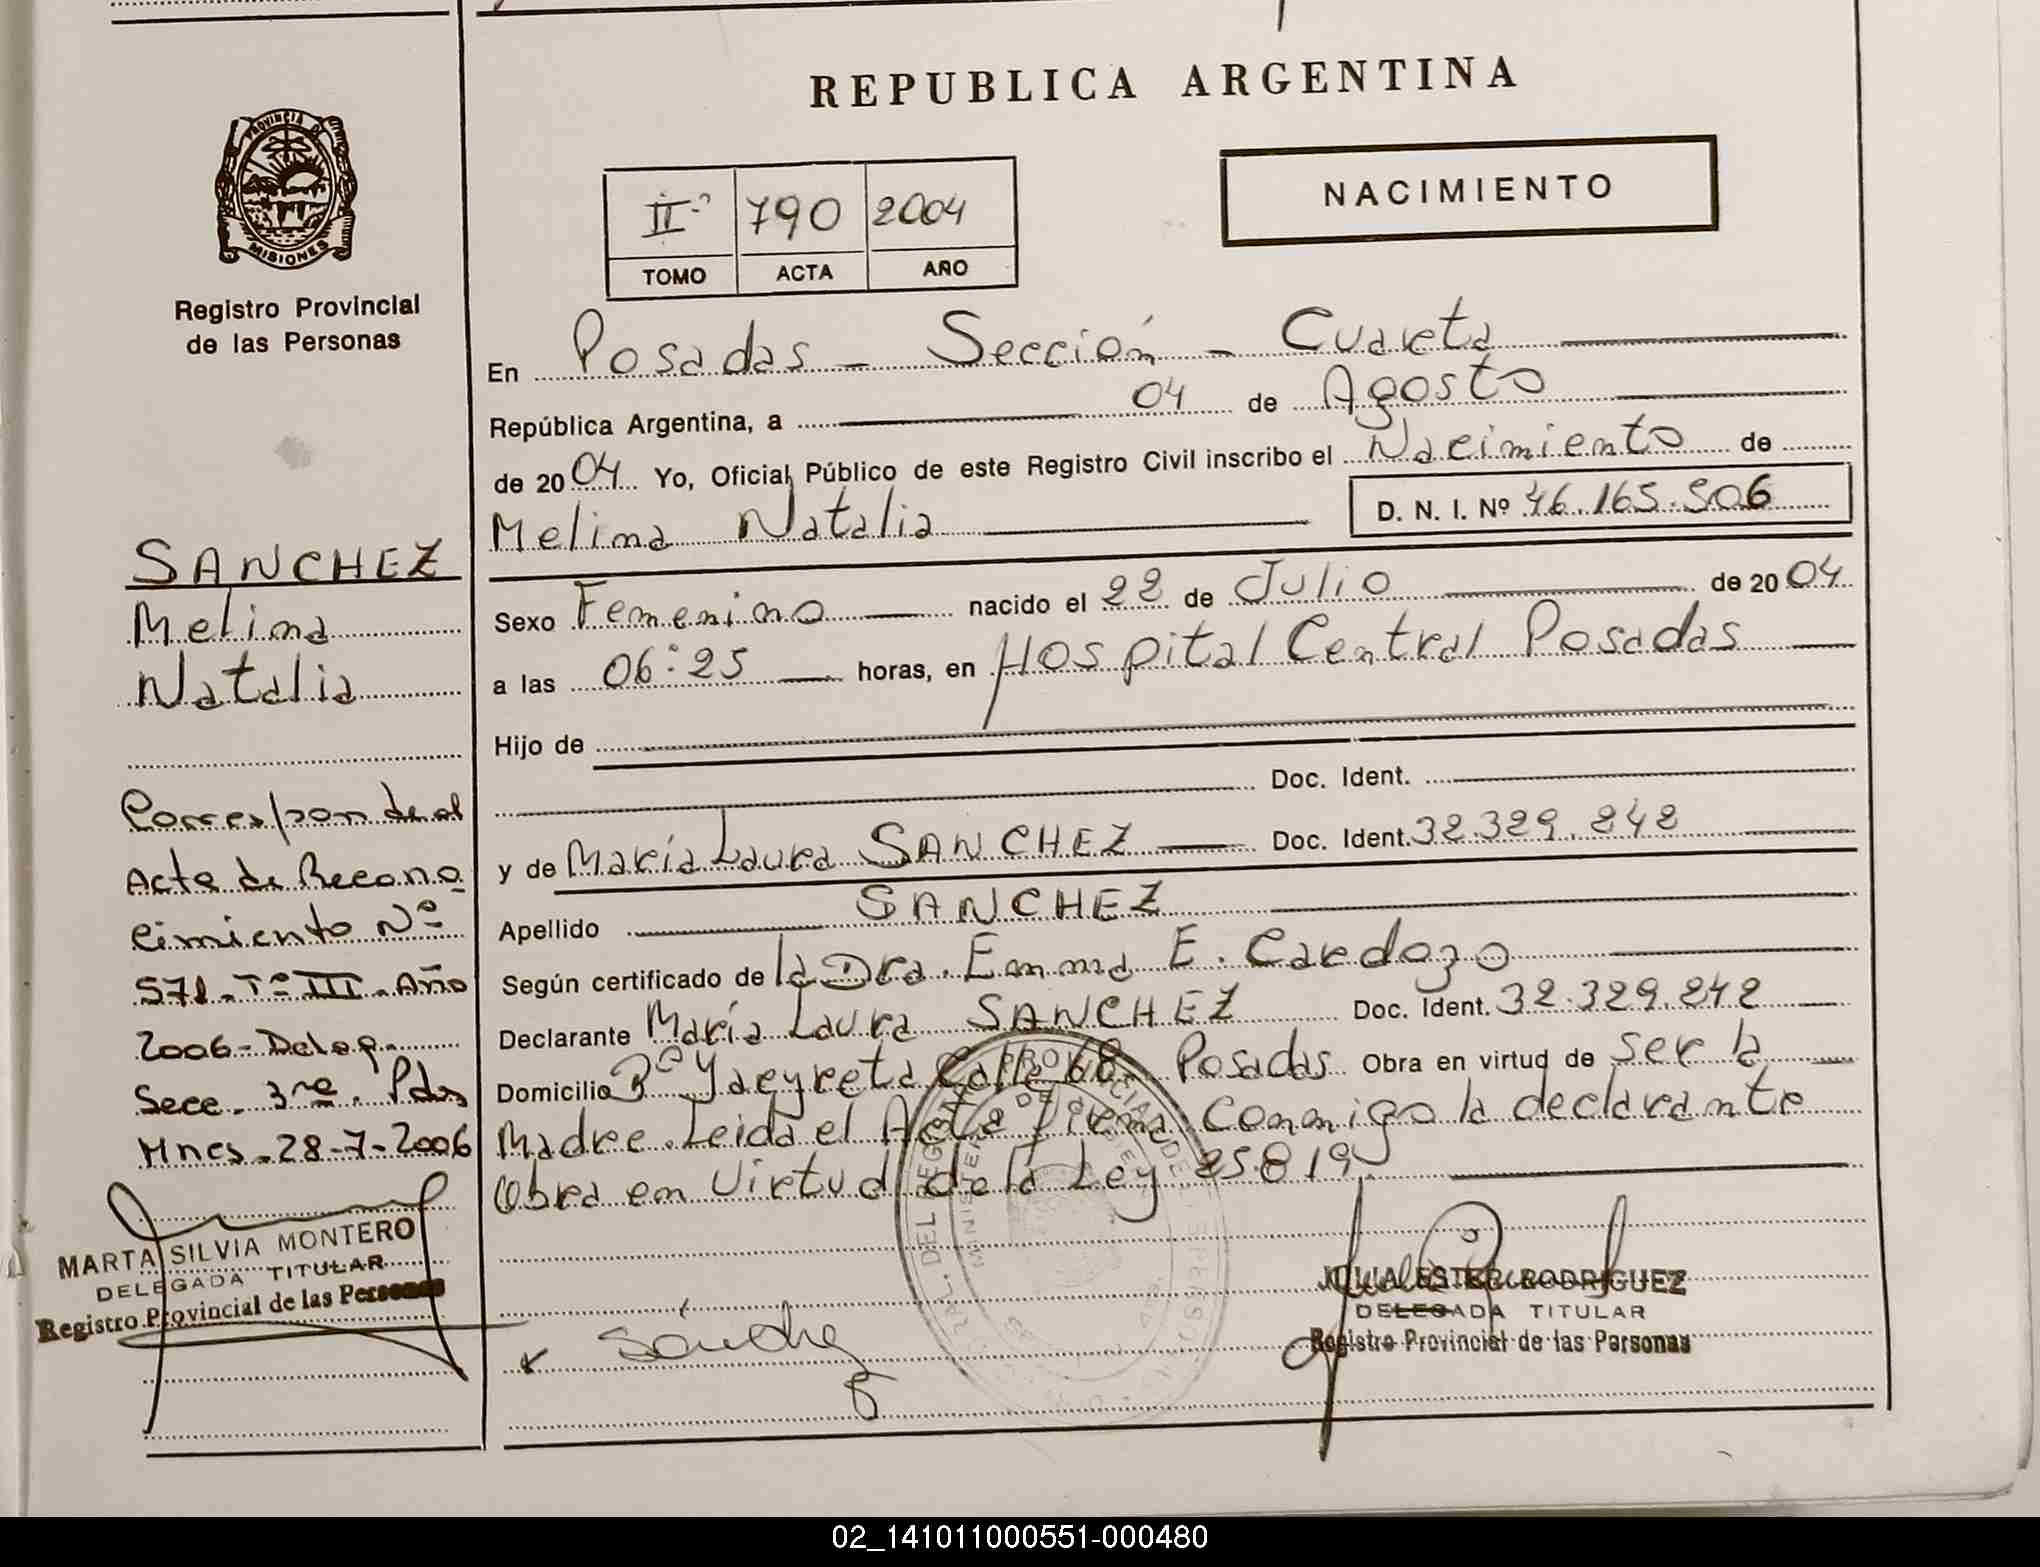 REPUBLICA ARGENTINA
PROVINCIA DE
MISIONES
Registro Provincial
de las Personas
NACIMIENTO
II 790 2004
TOMO ACTA AÑO
En Posadas - Sección - Cuarta
República Argentina, a 04 de Agosto
de 2004 Yo, Oficial Público de este Registro Civil inscribo el Nacimiento de
Melina Natalia D. N. I. Nº 46.165.506
Sexo Femenino nacido el 22 de Julio de 2004
a las 06:25 horas, en Hospital Central Posadas
Hijo de
Doc. Ident.
y de María Laura SANCHEZ Doc. Ident. 32.329.242
Apellido SANCHEZ
Según certificado de la Dra. Emma E. Cardozo
Declarante María Laura SANCHEZ Doc. Ident. 32.329.242
Domicilio Bº Yacyreta Calle 68 Posadas Obra en virtud de ser la
Madre. Leida el Acta firma conmigo la declarante
Obra en Virtud de la Ley 25.819
Sánchez
JULIA ESTER RODRIGUEZ
DELEGADA TITULAR
Registro Provincial de las Personas
SANCHEZ
Melina
Natalia
Corresponde al
Acta de Recono
cimiento Nº
571 - Tº III - Año
2006 - Deleg.
Secc. 3ra. Pdas
Mnes - 28-7-2006
MARTA SILVIA MONTERO
DELEGADA TITULAR
Registro Provincial de las Personas
02_141011000551-000480